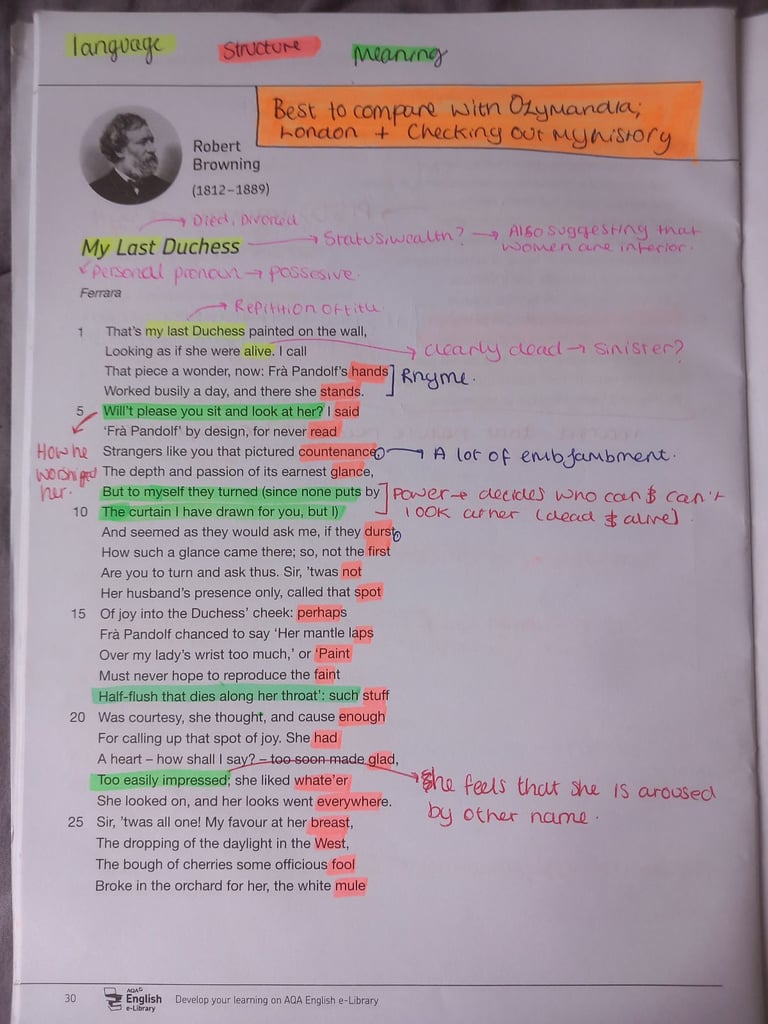 language Structure Meaning
Best to compare with Ozymandia;
London + Checking out my history
Robert
Browning
(1812–1889)
Died, Divorced
My Last Duchess
Status/wealth? → Also suggesting that
women are inferior.
Personal pronoun → possesive.
Ferrara
Repitition of title
1 That's my last Duchess painted on the wall,
Looking as if she were alive. I call
clearly dead → sinister?
That piece a wonder, now: Frà Pandolf's hands
Worked busily a day, and there she stands.
Rhyme.
5 Will't please you sit and look at her? I said
'Frà Pandolf' by design, for never read
Strangers like you that pictured countenance,
A lot of enbjambment.
How he
worshipped
her.
The depth and passion of its earnest glance,
But to myself they turned (since none puts by
10 The curtain I have drawn for you, but I)
Power → decides who can & can't
look at her (dead & alive).
And seemed as they would ask me, if they durst,
How such a glance came there; so, not the first
Are you to turn and ask thus. Sir, 'twas not
Her husband's presence only, called that spot
15 Of joy into the Duchess' cheek: perhaps
Frà Pandolf chanced to say 'Her mantle laps
Over my lady's wrist too much,' or 'Paint
Must never hope to reproduce the faint
Half-flush that dies along her throat': such stuff
20 Was courtesy, she thought, and cause enough
For calling up that spot of joy. She had
A heart – how shall I say? – too soon made glad,
Too easily impressed; she liked whate'er
She looked on, and her looks went everywhere.
She feels that she is aroused
by other name.
25 Sir, 'twas all one! My favour at her breast,
The dropping of the daylight in the West,
The bough of cherries some officious fool
Broke in the orchard for her, the white mule
30 AQA English e-Library Develop your learning on AQA English e-Library